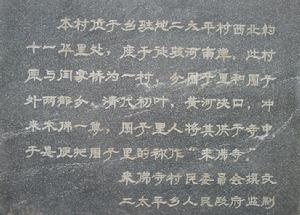 本村位于乡驻地二太平村西北约
十一华里处，座于徒骇河南岸，此村
原与闫家桥为一村，分围子里和围子
外两部分。清代初叶，黄河决口，冲
来木佛一尊，围子里人将其供于寺中
于是便把围子里的称作“来佛寺”
来佛寺村民委员会撰文
二太平乡人民政府监制